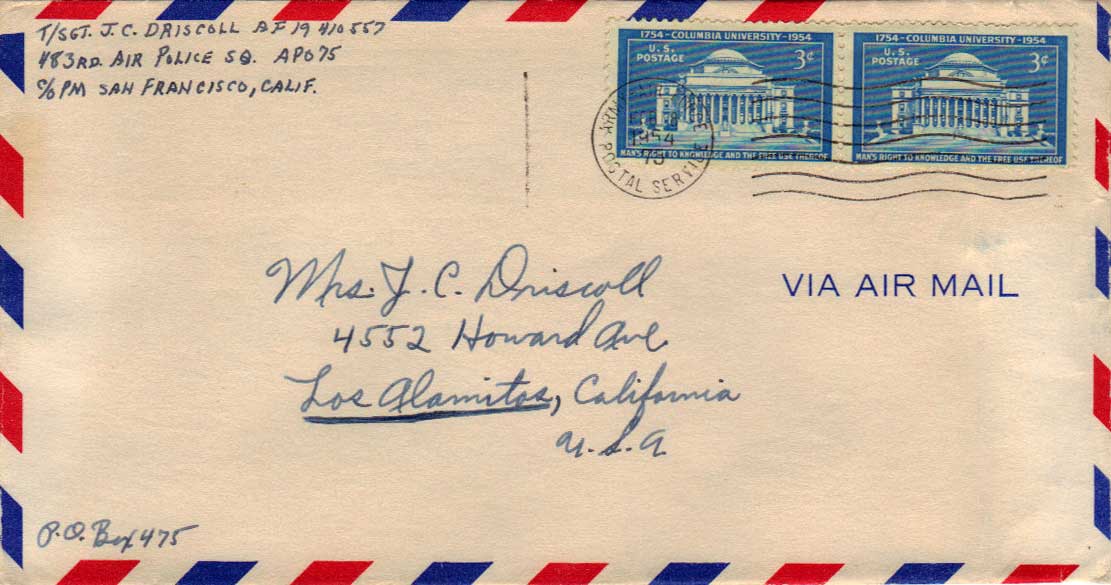 T/SGT. J. C. DRISCOLL AF 19 410 557
483RD. AIR POLICE SQ. APO 75
C/O PM SAN FRANCISCO, CALIF.
1754-COLUMBIA UNIVERSITY-1954
U.S. POSTAGE
3¢
MAN'S RIGHT TO KNOWLEDGE AND THE FREE USE THEREOF
1754-COLUMBIA UNIVERSITY-1954
U.S. POSTAGE
3¢
MAN'S RIGHT TO KNOWLEDGE AND THE FREE USE THEREOF
ARMY
1954
75
POSTAL SERVICE
VIA AIR MAIL
Mrs. J. C. Driscoll
4552 Howard Ave
Los Alamitos, California
U.S.A
P.O. Box 475